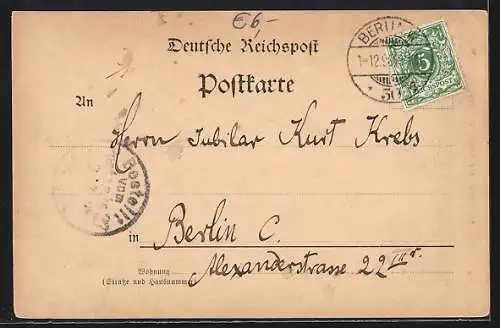 €6,-
Deutsche Reichspost
Postkarte
BERLIN
1-12 9
50
5
An
Herrn Jubilar Kurt Krebs
Bestellt
vom
in Berlin C.
Alexanderstrasse 22 III r.
Wohnung
(Straße und Hausnummer)